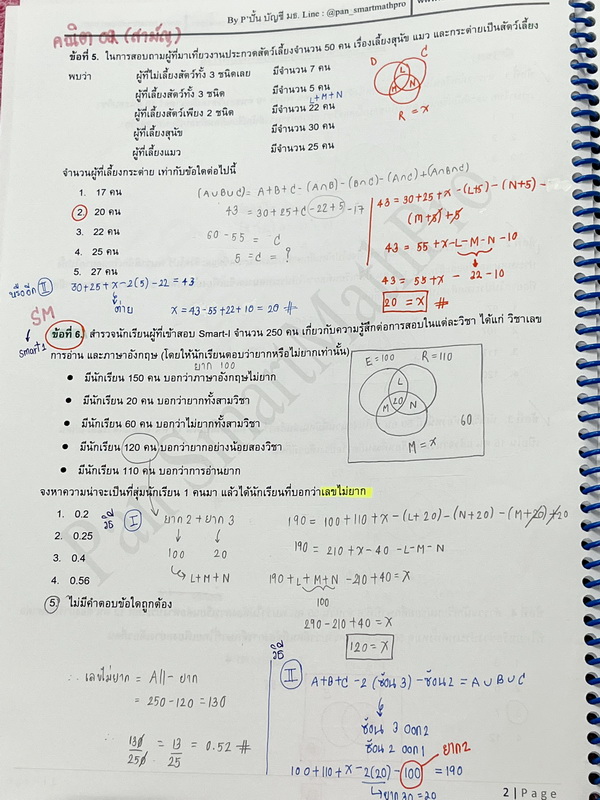 By P'ปั้น บัญชี มธ. Line : @pan_smartmathpro
www.
คณิต O2 (สามัญ)
ข้อที่ 5. ในการสอบถามผู้ที่มาเที่ยวงานประกวดสัตว์เลี้ยงจำนวน 50 คน เรื่องเลี้ยงสุนัข แมว และกระต่ายเป็นสัตว์เลี้ยง
พบว่า ผู้ที่ไม่เลี้ยงสัตว์ทั้ง 3 ชนิดเลย มีจำนวน 7 คน
ผู้ที่เลี้ยงสัตว์ทั้ง 3 ชนิด มีจำนวน 5 คน
L+M+N
ผู้ที่เลี้ยงสัตว์เพียง 2 ชนิด มีจำนวน 22 คน
ผู้ที่เลี้ยงสุนัข มีจำนวน 30 คน
ผู้ที่เลี้ยงแมว มีจำนวน 25 คน
D C
L
M N
R = x
จำนวนผู้ที่เลี้ยงกระต่าย เท่ากับข้อใดต่อไปนี้
1. 17 คน
2. 20 คน
3. 22 คน
4. 25 คน
5. 27 คน
(A∪B∪C) = A+B+C-(A∩B)-(B∩C)-(A∩C)+(A∩B∩C)
43 = 30+25+C-22+5-17
60-55 = C
5 = C = ?
43 = 30+25+x-(L+5)-(N+5)-
(M+5)+5
43 = 55+x-L-M-N-10
43 = 55+x-22-10
20 = x #
หรืออีก II
30+25+x-2(5)-22 = 43
ต่าย x = 43-55+22+10 = 20 #
SM
smart1
ข้อที่ 6. สำรวจนักเรียนผู้ที่เข้าสอบ Smart-I จำนวน 250 คน เกี่ยวกับความรู้สึกต่อการสอบในแต่ละวิชา ได้แก่ วิชาเลข
การอ่าน และภาษาอังกฤษ (โดยให้นักเรียนตอบว่ายากหรือไม่ยากเท่านั้น)
ยาก 100
• มีนักเรียน 150 คน บอกว่าภาษาอังกฤษไม่ยาก
• มีนักเรียน 20 คน บอกว่ายากทั้งสามวิชา
• มีนักเรียน 60 คน บอกว่าไม่ยากทั้งสามวิชา
• มีนักเรียน 120 คน บอกว่ายากอย่างน้อยสองวิชา
• มีนักเรียน 110 คน บอกว่าการอ่านยาก
E=100 R=110
L
M 20 N
60
M = x
จงหาความน่าจะเป็นที่สุ่มนักเรียน 1 คนมา แล้วได้นักเรียนที่บอกว่าเลขไม่ยาก
1. 0.2
2. 0.25
3. 0.4
4. 0.56
5. ไม่มีคำตอบข้อใดถูกต้อง
วิธี I
ยาก 2 + ยาก 3
100 20
L+M+N
190 = 100+110+x-(L+20)-(N+20)-(M+20)+20
190 = 210+x-40-L-M-N
190+L+M+N-210+40 = x
100
290-210+40 = x
120 = x
∴ เลขไม่ยาก = All - ยาก
= 250-120 = 130
∴ 130/250 = 13/25 = 0.52 #
วิธี
II
A+B+C-2(ซ้อน 3)-ซ้อน 2 = A∪B∪C
ซ้อน 3 ออก 2
ซ้อน 2 ออก 1
ยาก 2
100+110+x-2(20)-100 = 190
2 | Page
Pan SmartMathPro